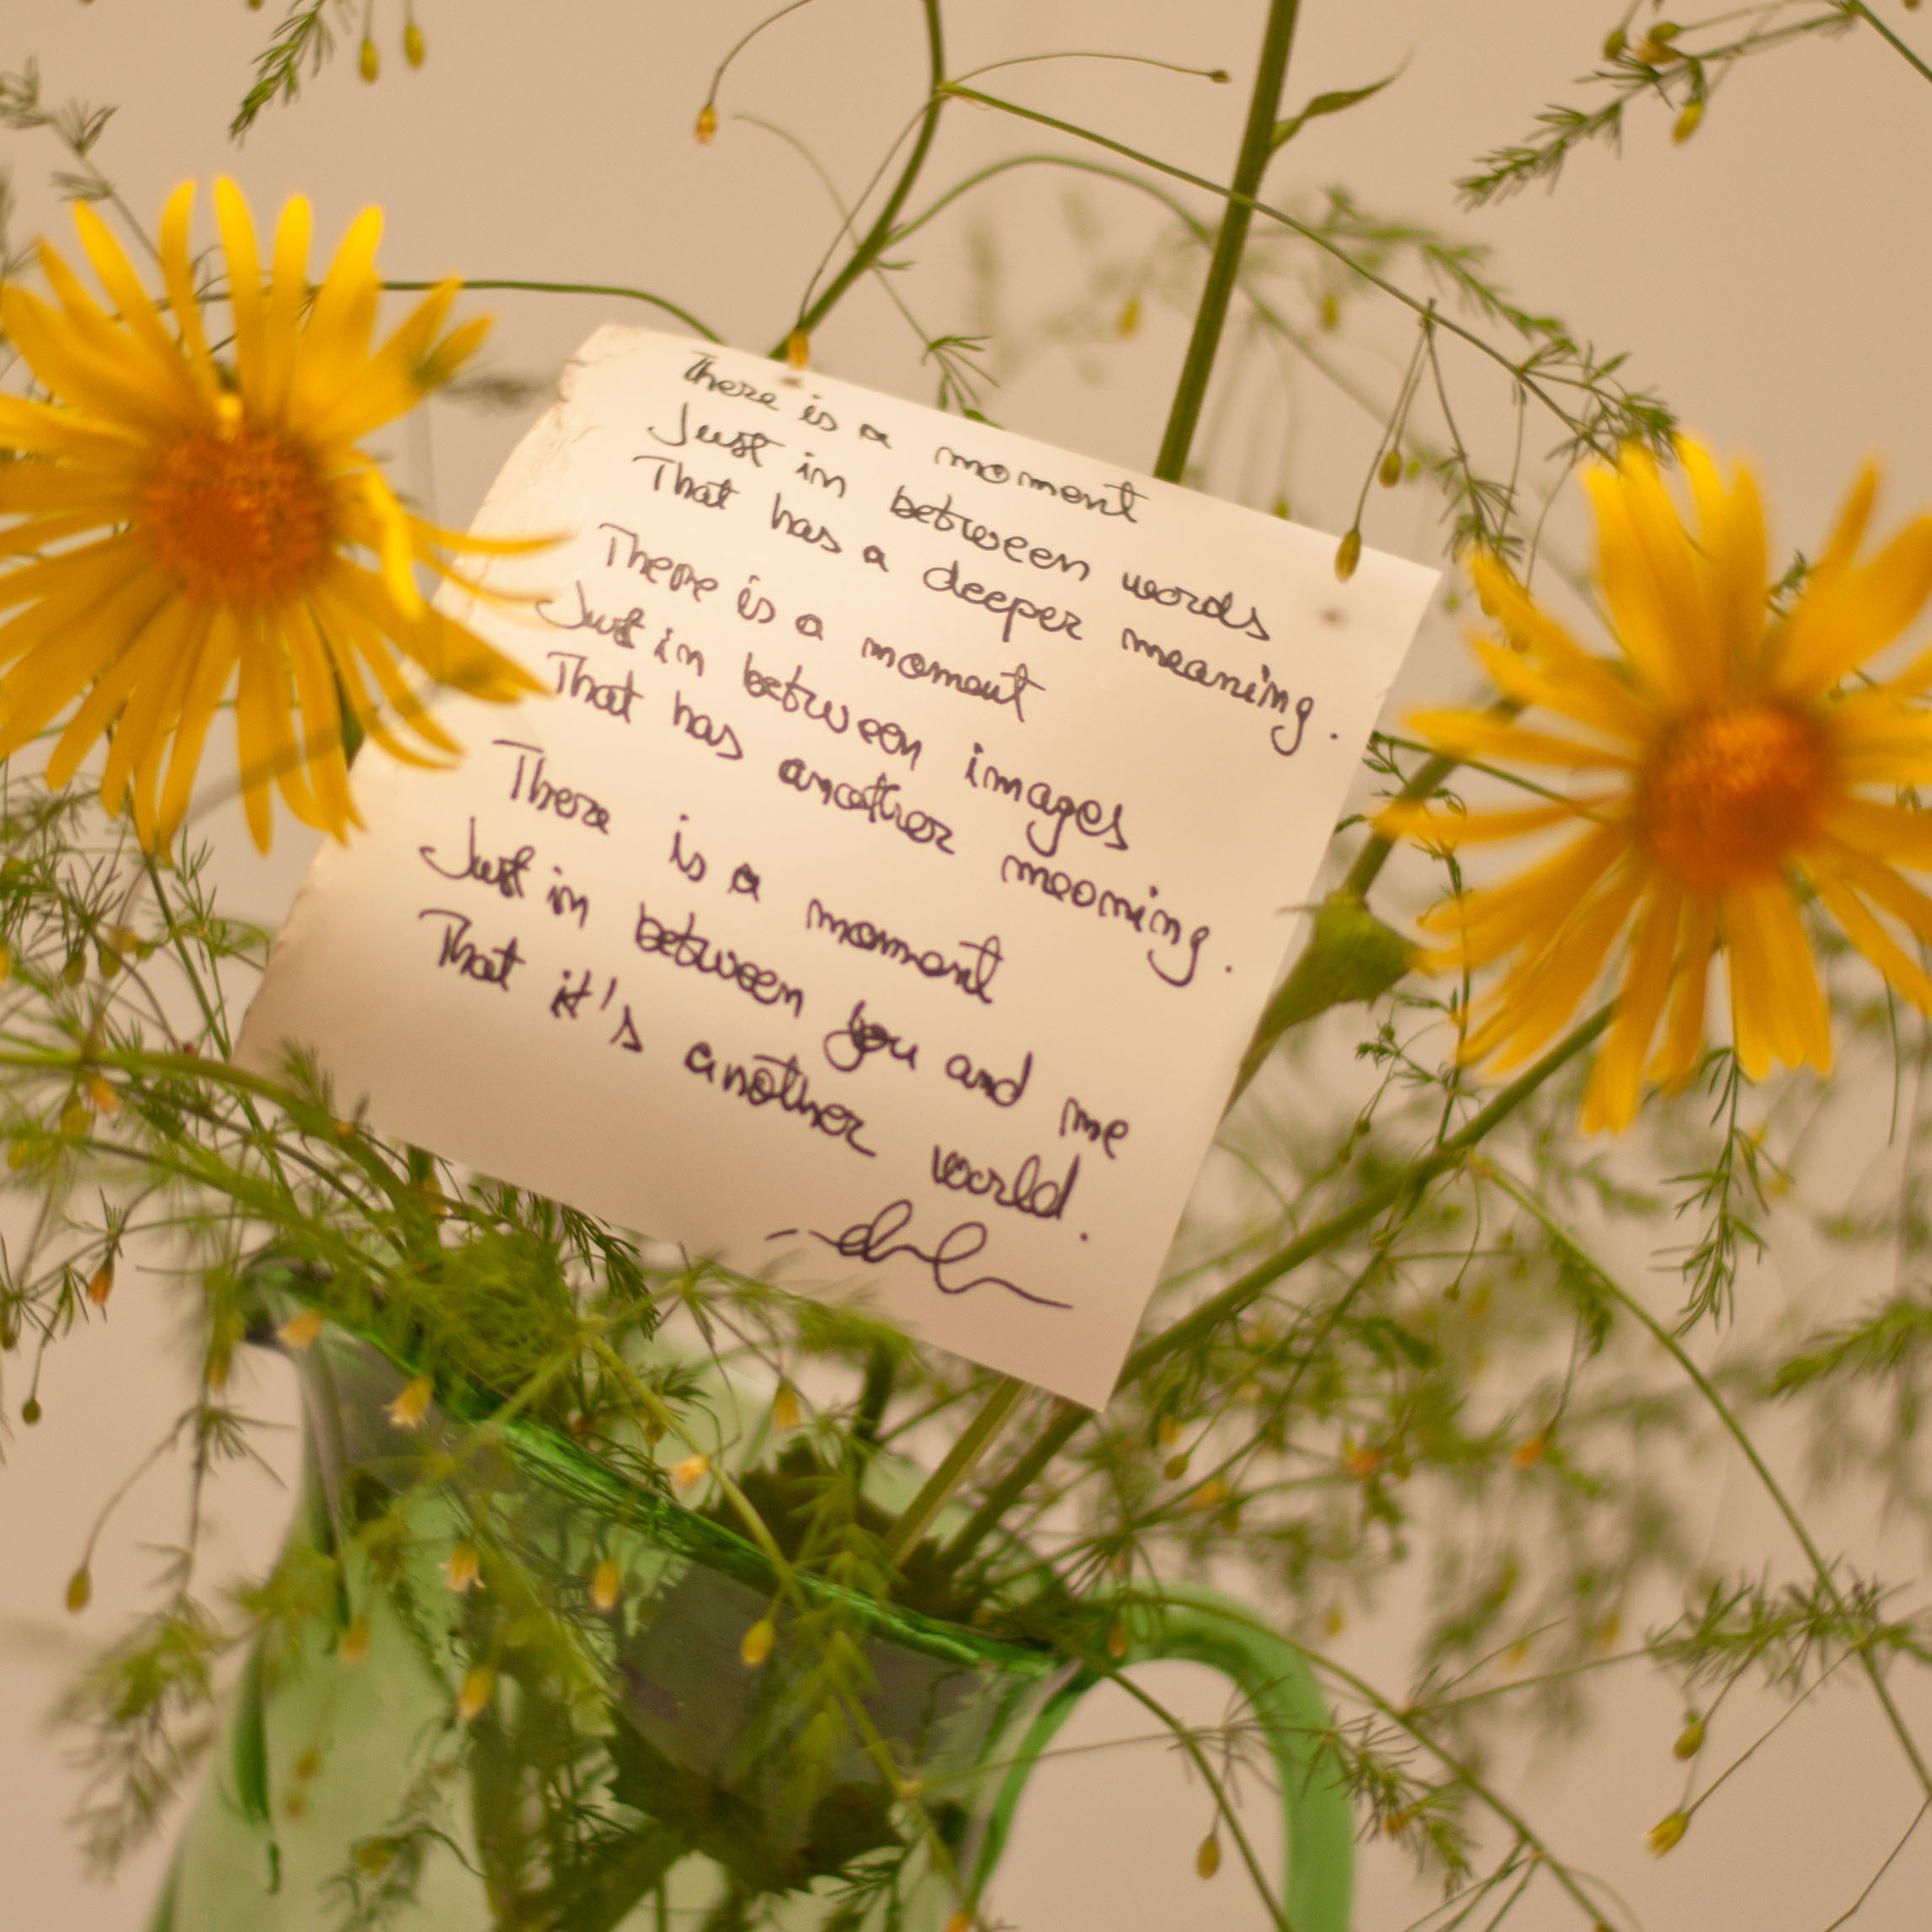 There is a moment
Just in between words
That has a deeper meaning.
There is a moment
Just in between images
That has another meaning.
There is a moment
Just in between you and me
That it's another world.